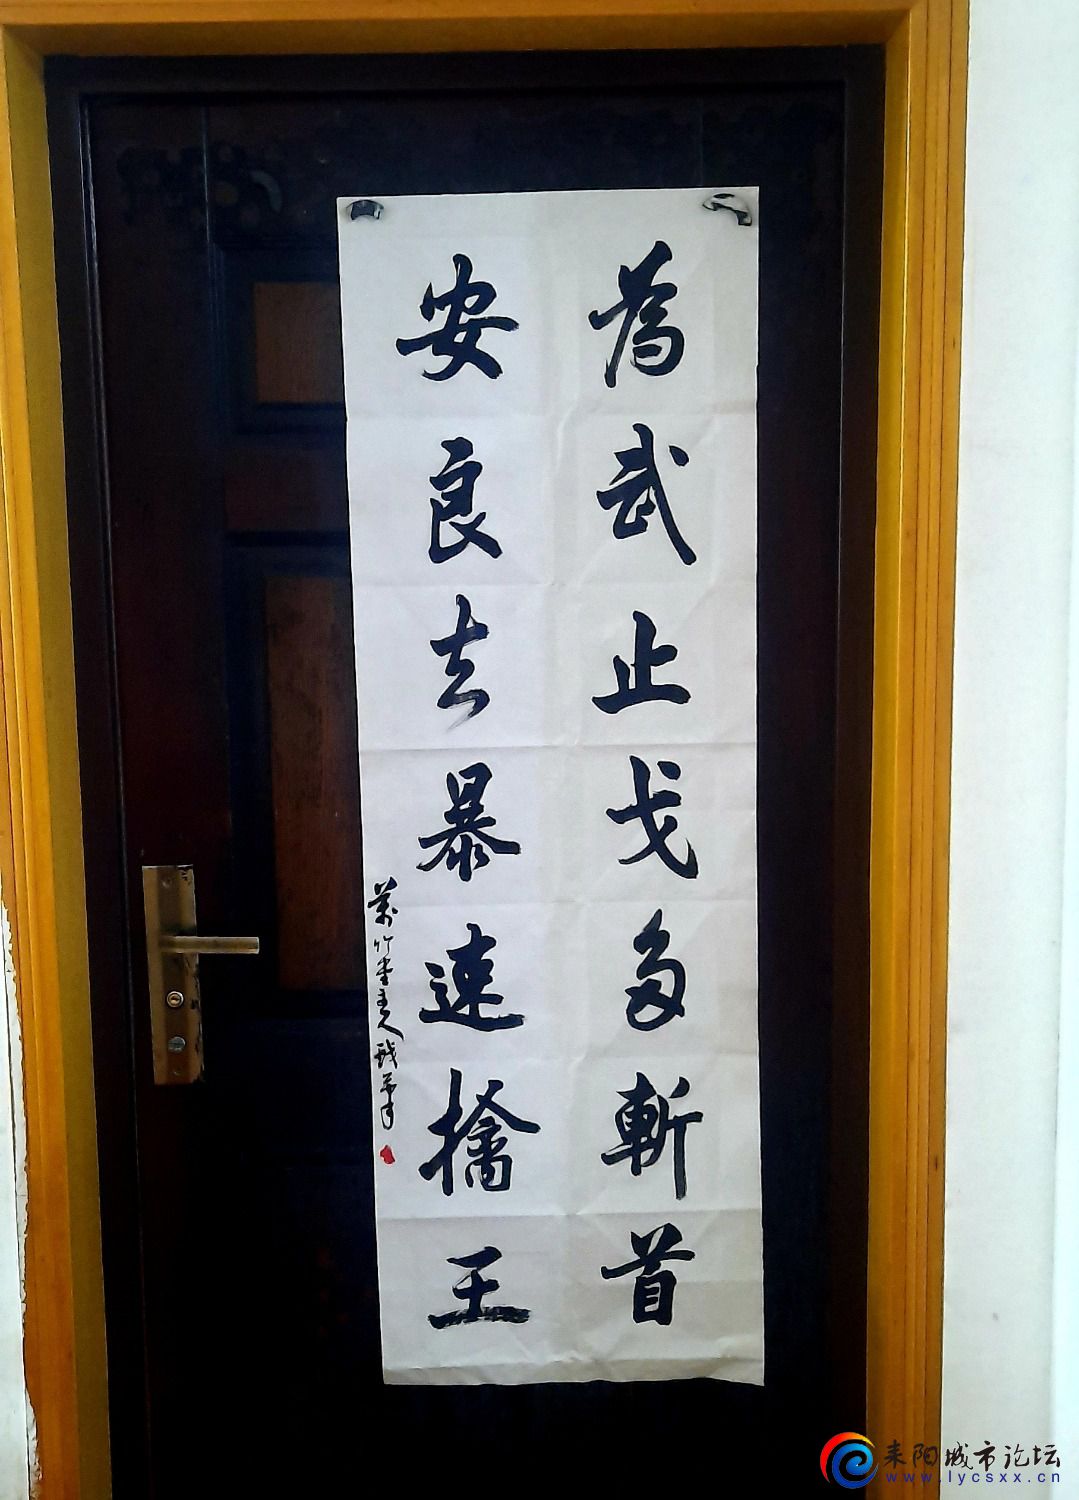 為武止戈多斬首
安良去暴速擒王
萬竹堂主人
耒阳城市论坛
www.lycsxx.cn